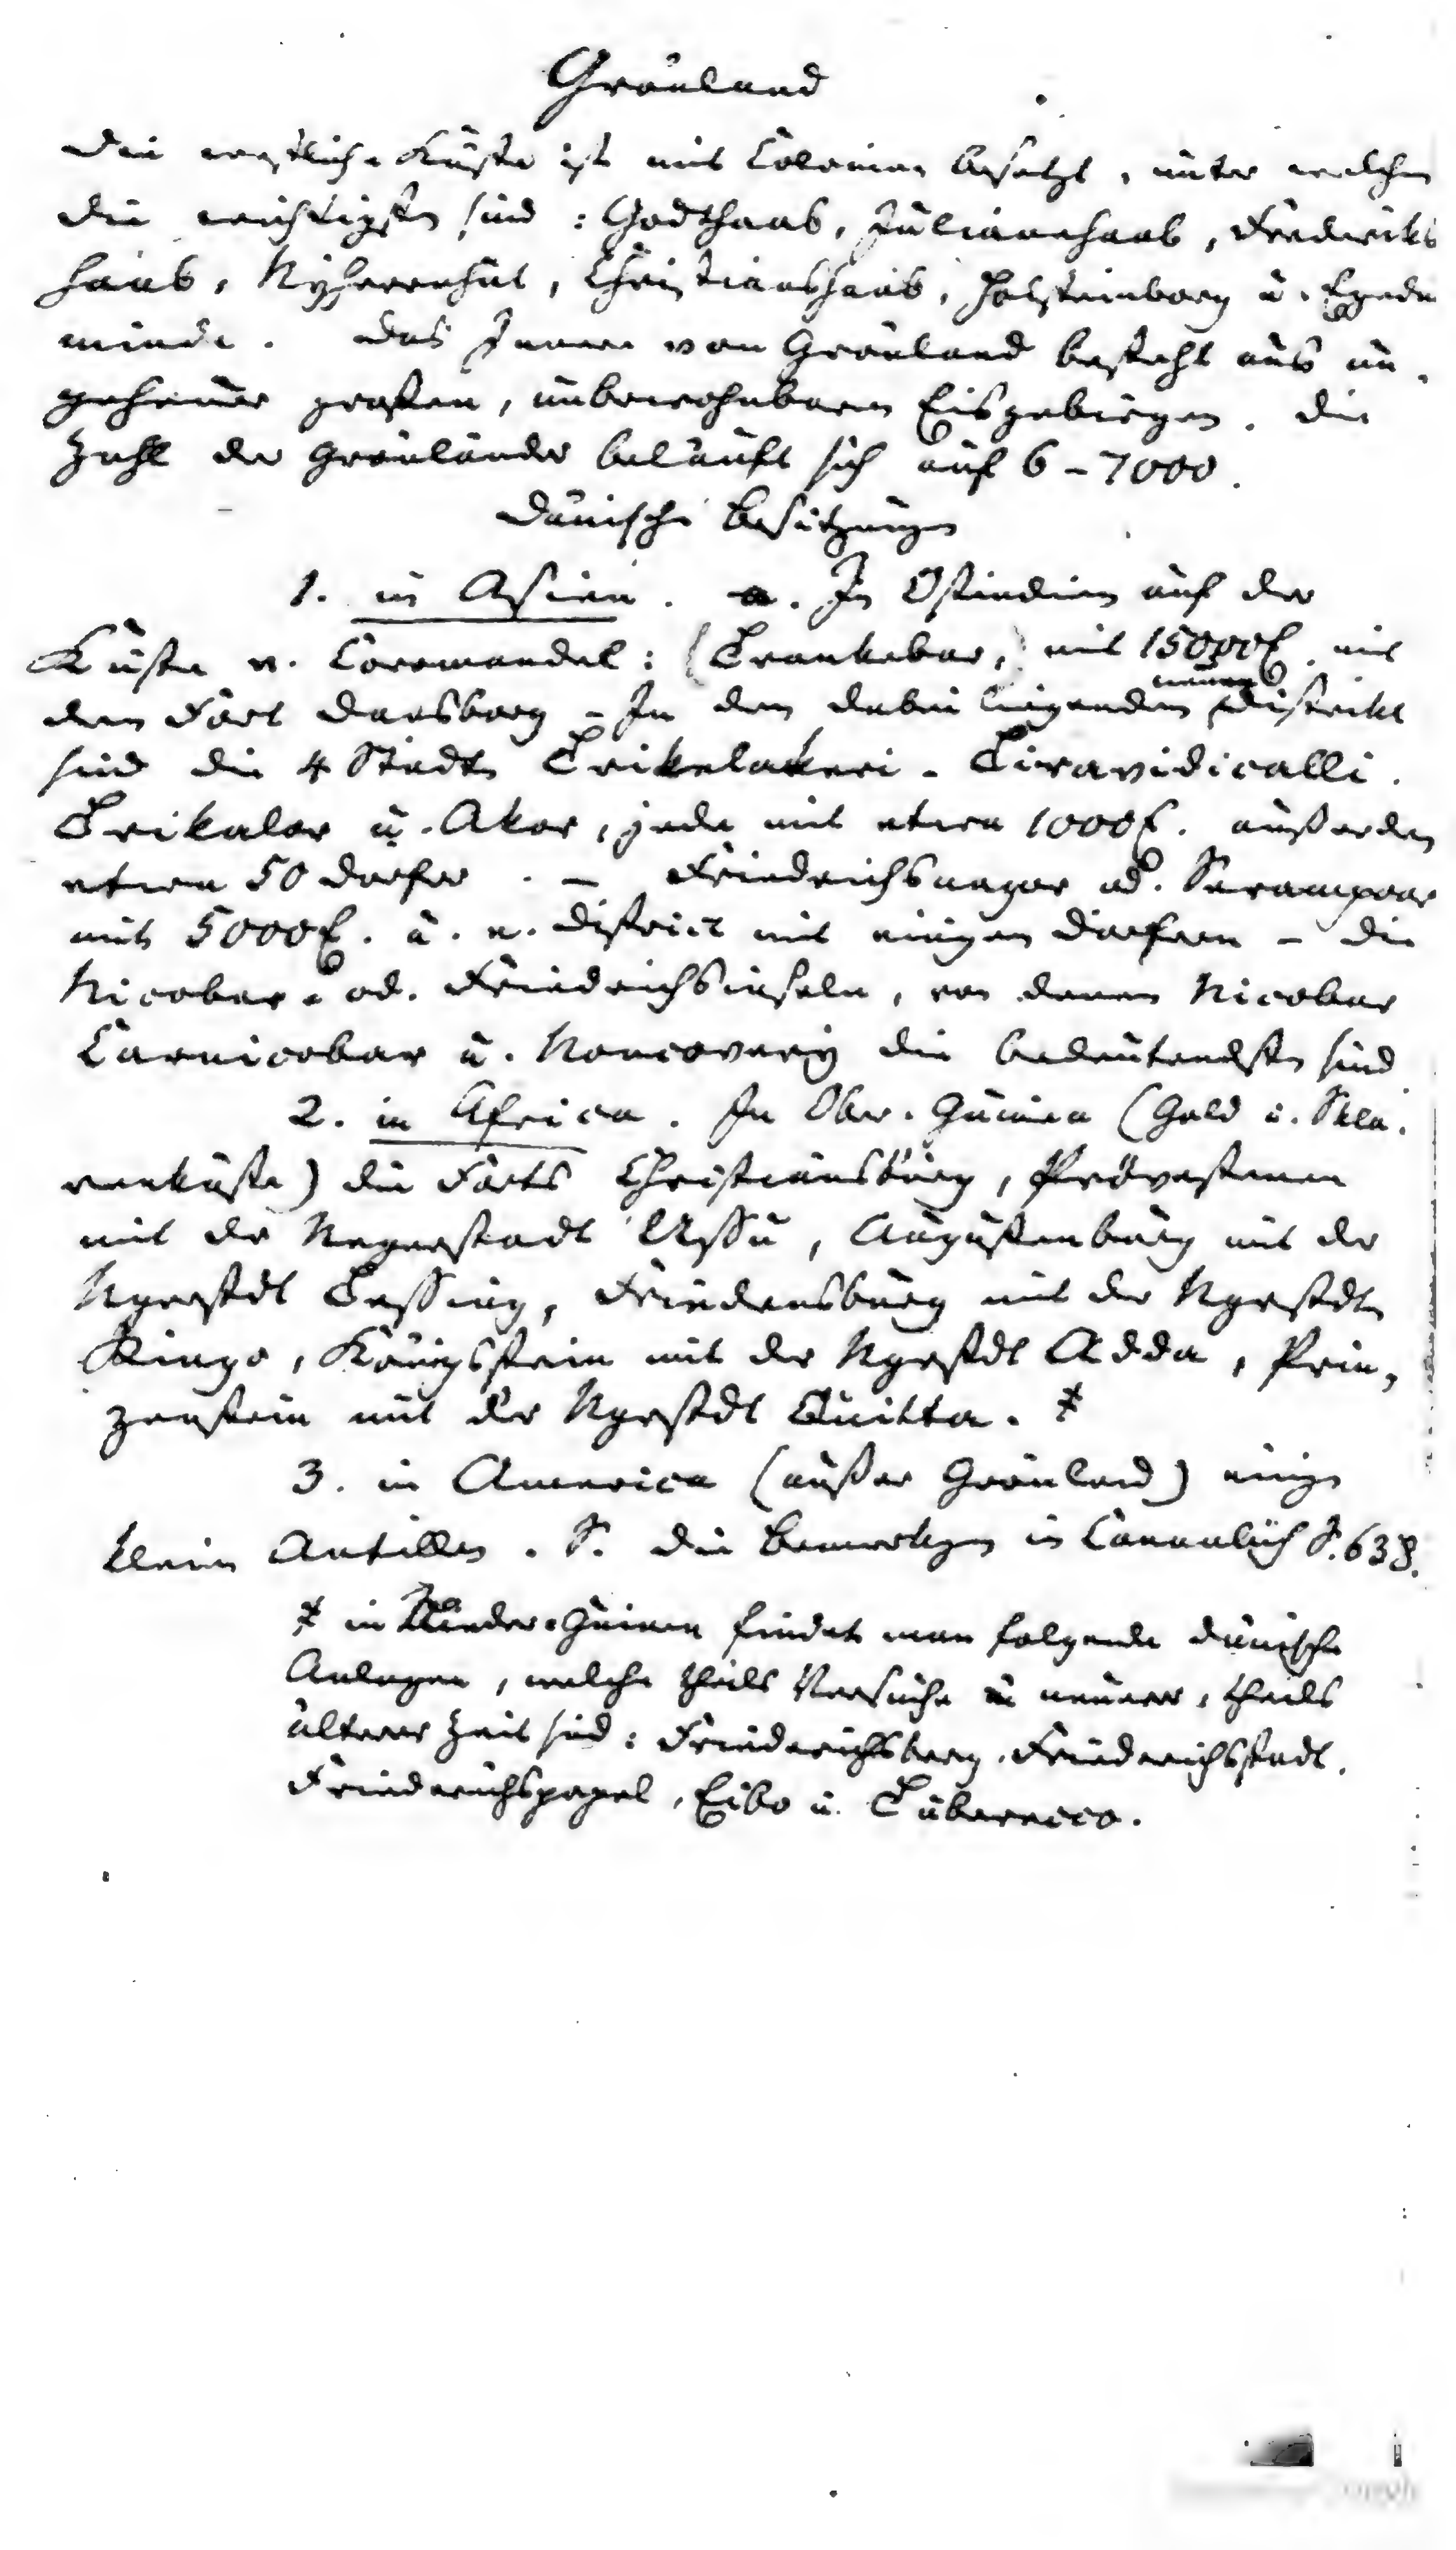 Grönland
Die westliche Küste ist mit Colonien besetzt, unter welchen
die wichtigsten sind: Godthaab, Julianehaab, Frederiks
haab, Nyherrnhut, Christianshaab, Holsteinborg u. Egedes
minde. Das Innere von Grönland besteht aus un-
geheuer großen, unbewohnbaren Eisgebirgen. Die
Zahl der Grönländer beläuft sich auf 6-7000.
Dänische Besitzungen
1. in Asien. a. In Ostindien auf der
Küste v. Coromandel: (Trankebar,) mit 15000 E. mit
neuen
dem Fort Dansborg - In dem dabei liegenden District
sind die 4 Städte Trikelakeri. Tiravidicalli.
Trikalor u. Akor, jede mit etwa 1000 E. außerdem
etwa 50 Dörfer. - Friedrichsnagor od. Serampoor
mit 5000 E. u. e. District mit einigen Dörfern - die
Nicobar- od. Friedrichsinseln, von denen Nicobar
Carnicobar u. Noncovery die bedeutendsten sind
2. in Africa. In Ober-Guinea (Gold u. Skla-
venküste) die Forts Christiansburg, Prövestenen
mit der Negerstadt Ussu, Augustenburg mit der
Ngerstdt Tessing, Friedensburg mit der Ngrstdt
Kingo, Königsstein mit der Ngrstdt Adda, Prin-
zenstein mit der Ngrstdt Quitta. ‡
3. in America (außer Grönland) einige
kleine Antillen. S. die Bemerkgen in S. 638.
‡ in Nieder-Guinea findet man folgende dänische
Anlagen, welche theils Versuche neuerer, theils
älterer Zeit sind: Friedrichsberg, Friedrichsstadt,
Eibo u.